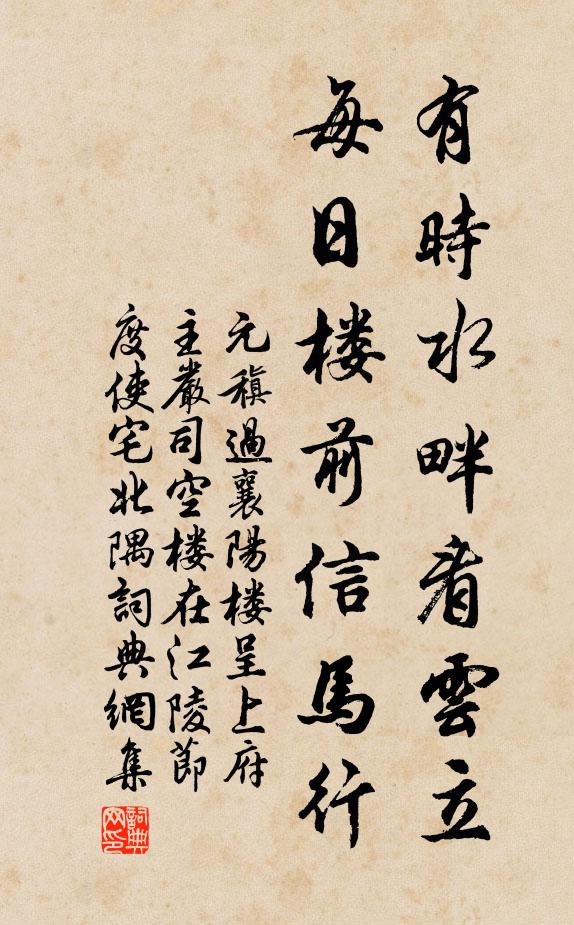 有時水畔看雲立
每日楼前信馬行
元稹過襄陽楼呈上府
主嚴司空楼在江陵節
度使宅北隅詞典網集
詞典网印